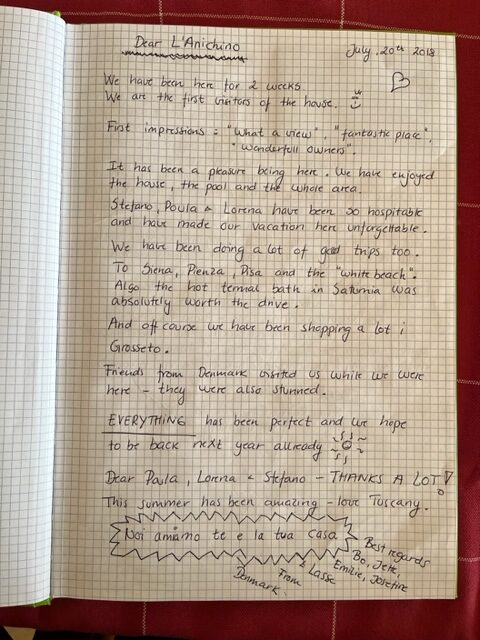 Dear L'Anichino
July, 20th 2018
We have been here for 2 weeks.
We are the first visitors of the house.
First impressions: "What a view", "fantastic place",
"wonderfull owners".
It has been a pleasure being here. We have enjoyed
the house, the pool and the whole area.
Stefano, Paula & Lorena have been so hospitable
and have made our vacation here unforgettable.
We have been doing a lot of good trips too.
To Siena, Pienza, Pisa and the "white beach".
Also the hot termal bath in Saturnia was
absolutely worth the drive.
And off course we have been shopping a lot i
Grosseto.
Friends from Denmark visited us while we were
here - they were also stunned.
EVERYTHING has been perfect and we hope
to be back next year allready
Dear Paula, Lorena & Stefano - THANKS A LOT!
This summer has been amazing - love Tuscany.
Noi amiamo te e la tua casa
Best regards
Bo, Jette,
Emilie, Josefine
& Lasse
From
Denmark.